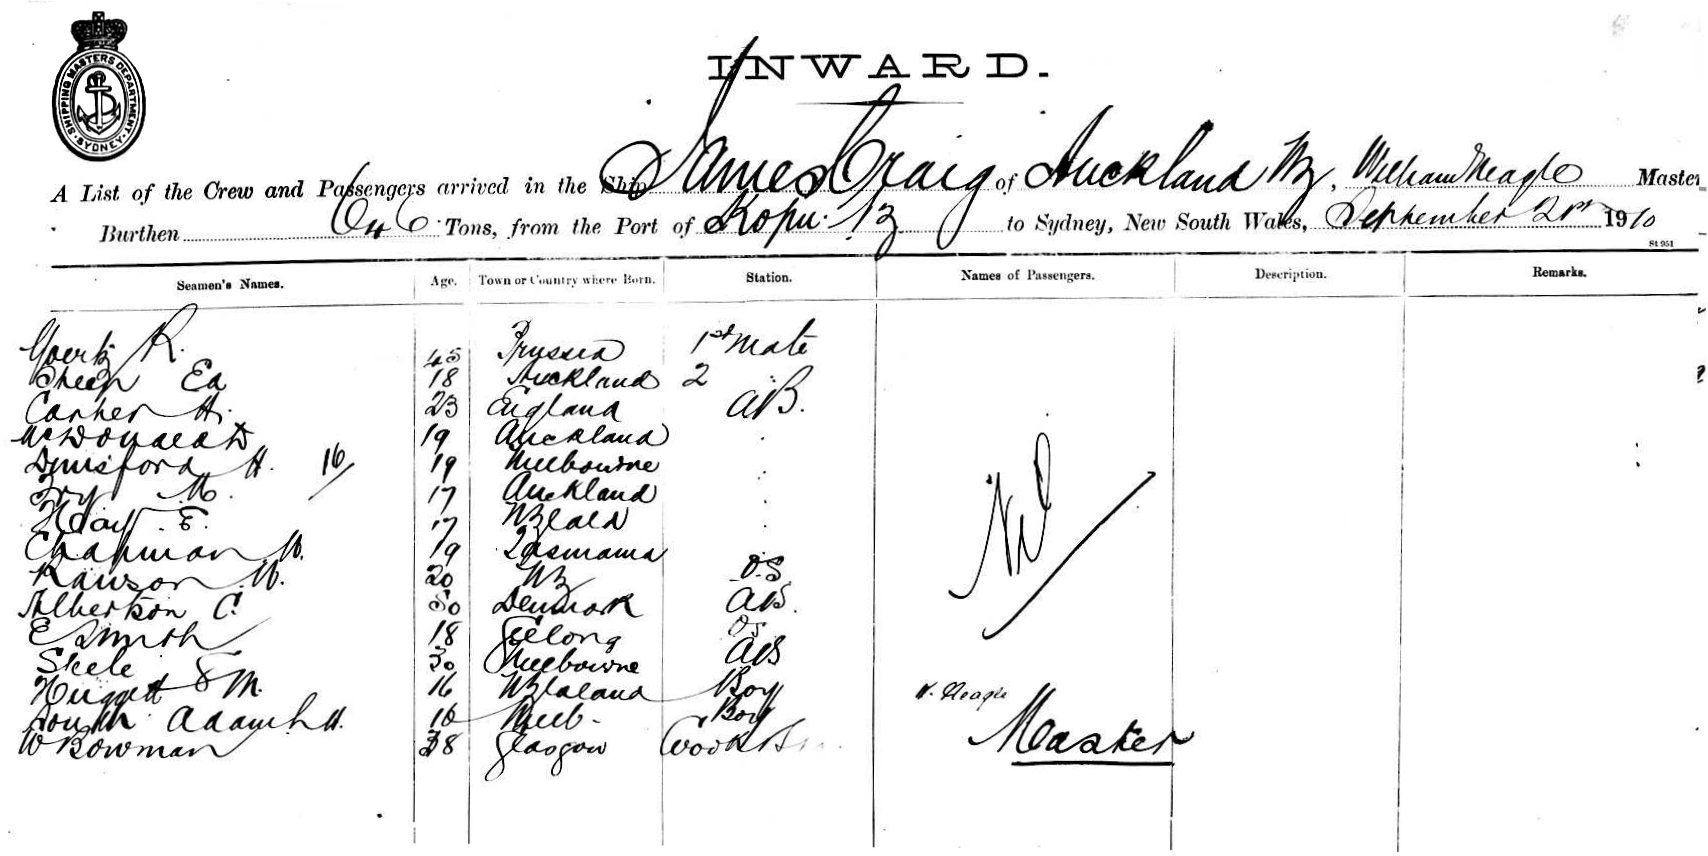 SHIPPING MASTERS DEPARTMENT · SYDNEY ·
INWARD.
A List of the Crew and Passengers arrived in the Ship James Craig of Auckland NZ, William Neagle Master
Burthen 646 Tons, from the Port of Kopu. NZ to Sydney, New South Wales, September 21st 1910
St 951
Seamen's Names. Age. Town or Country where Born. Station. Names of Passengers. Description. Remarks.
R. 45 Prussia 1st Mate
Ed 18 Auckland 2
Carter H. 23 England AB.
McDonald D 19 Auckland
H. 16 19 Melbourne
Fry M. 17 Auckland
E. 17 NZland
Chapman W. 19 Tasmania
Rawson W. 20 NZ O.S
Albertson C. 50 Denmark AB.
E Smith 18 Geelong OS
30 Melbourne AB
M. 16 NZealand Boy
Adam H. 16 Melb- Boy
W Bowman 38 Glasgow Cook
Nil
W. Neagle
Master